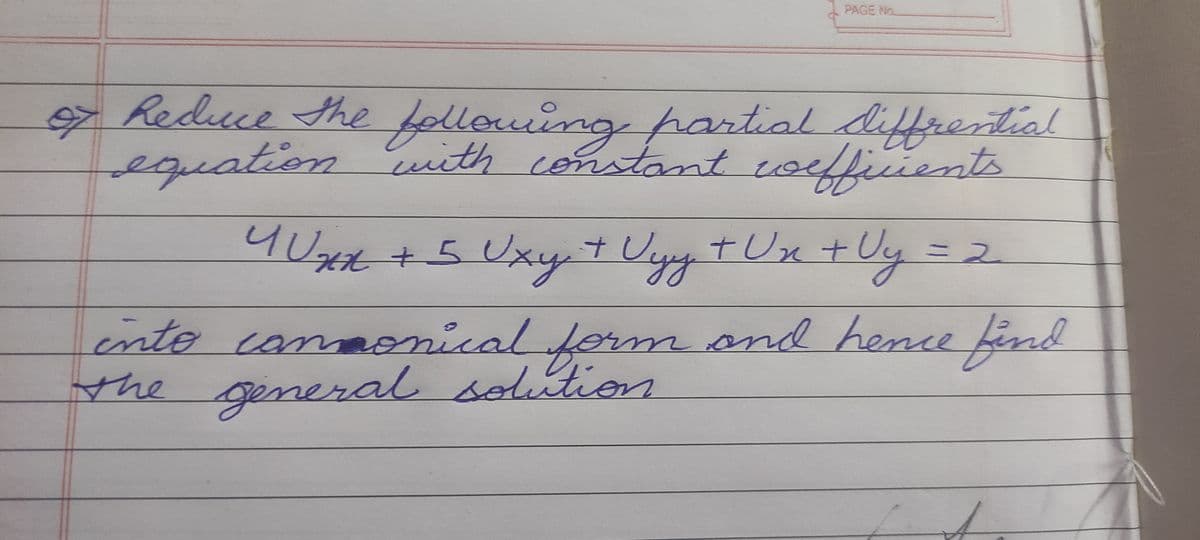 PAGE No.
Q) Reduce the following partial diffrential
equation with constant coefficients
4Uxx + 5 Uxy + Uyy + Ux + Uy = 2
into canmonical form and hence find
the general solution